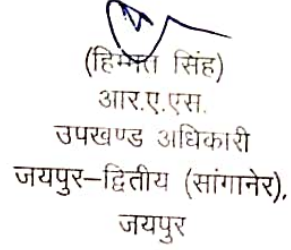 (हिम्मत सिंह)
आर.ए.एस.
उपखण्ड अधिकारी
जयपुर–द्वितीय (सांगानेर),
जयपुर